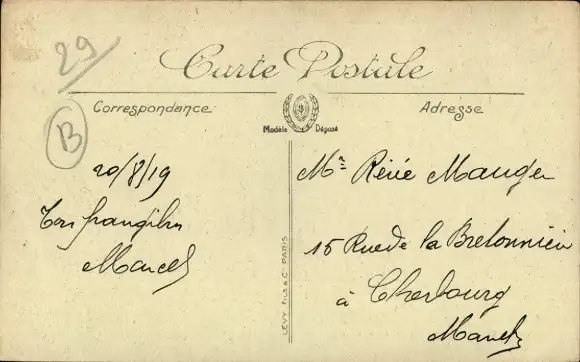 29
B
Carte Postale
Correspondance
Adresse
Modèle Déposé
20/8/19
Ton frangibus
Marcel
LEVY FILS & Cie PARIS
Mr Réné Mauger
15 Rue de la Bretonnière
à Cherbourg
Manche